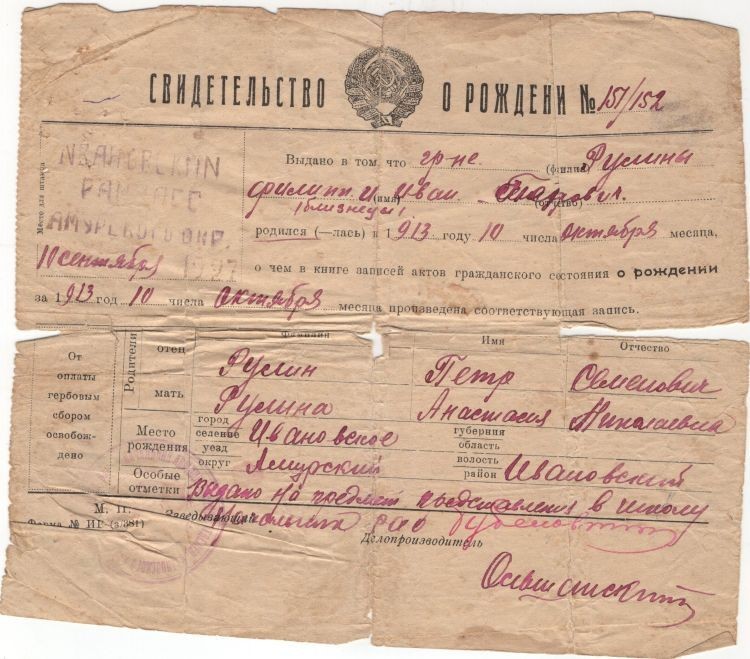 СВИДЕТЕЛЬСТВО О РОЖДЕНИ № 151/152
Место для штампа
ИВАНОВСКИЙ
РАЙ ЗАГС
АМУРСКОГО ОКР.
10 сентября 1927
Выдано в том что гр-не (фамилия) Руслины
Филипп и Иван (имя) (отчество)
(близнецы)
родился (—лась) в 1913 году 10 числа октября месяца,
о чем в книге записей актов гражданского состояния о рождении
за 1913 год 10 числа октября месяца произведена соответствующая запись.
От оплаты гербовым сбором освобождено
Родители
Фамилия Имя Отчество
отец Руслин Петр Семенович
мать Руслина Анастасия Николаевна
Место рождения
город селение Ивановское губерния область
уезд округ Амурский волость район Ивановский
Особые отметки Выдано на предмет представления в школу
М. П.
Форма № ИГ (з/881)
Заведывающий
Делопроизводитель